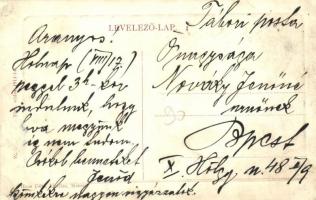 LEVELEZŐ-LAP
Aranyos!
Holnap (VIII/17.)
reggel 3h-kor
indulunk, hogy
hova megyünk
én nem tudom.
Csókol benneteket
Jenőd
nagyon vigyázzatok.
Tábori posta
Őnagysága
Nováky Jenőné
úrnőnek
Bpest
X. Hölgy u. 48 II/9